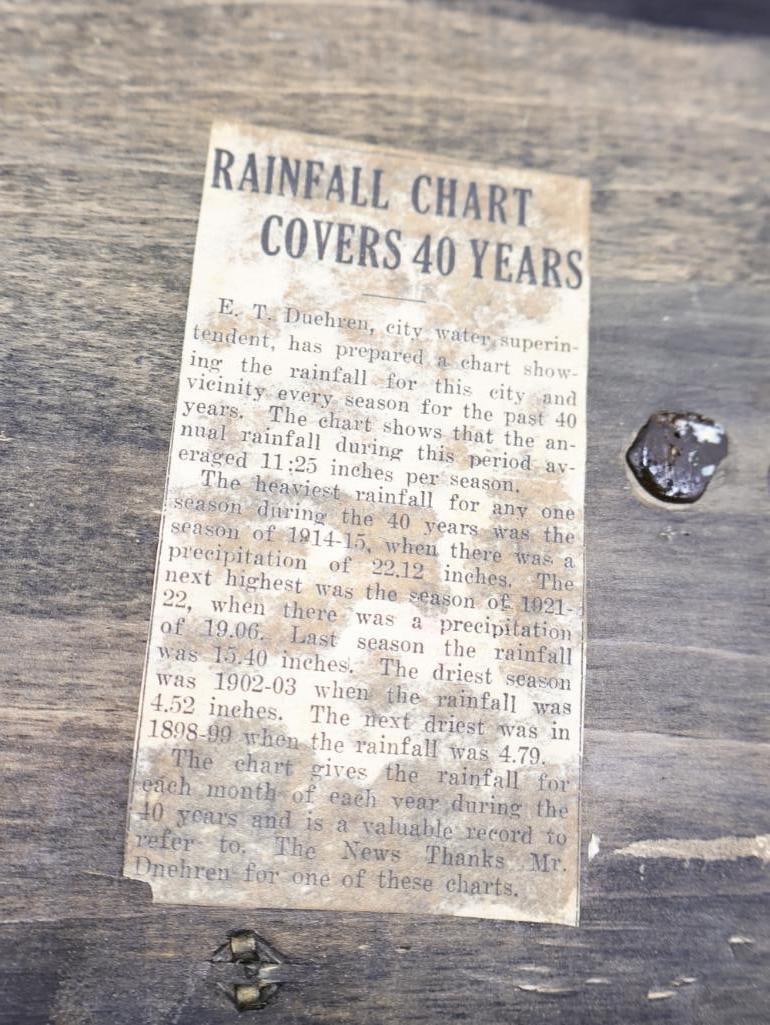 RAINFALL CHART
COVERS 40 YEARS
E. T. Duehren, city water superin-
tendent, has prepared a chart show-
ing the rainfall for this city and
vicinity every season for the past 40
years. The chart shows that the an-
nual rainfall during this period av-
eraged 11:25 inches per season.
The heaviest rainfall for any one
season during the 40 years was the
season of 1914-15, when there was a
precipitation of 22.12 inches. The
next highest was the season of 1921-
22, when there was a precipitation
of 19.06. Last season the rainfall
was 15.40 inches. The driest season
was 1902-03 when the rainfall was
4.52 inches. The next driest was in
1898-99 when the rainfall was 4.79.
The chart gives the rainfall for
each month of each year during the
40 years and is a valuable record to
refer to. The News Thanks Mr.
Dnehren for one of these charts.